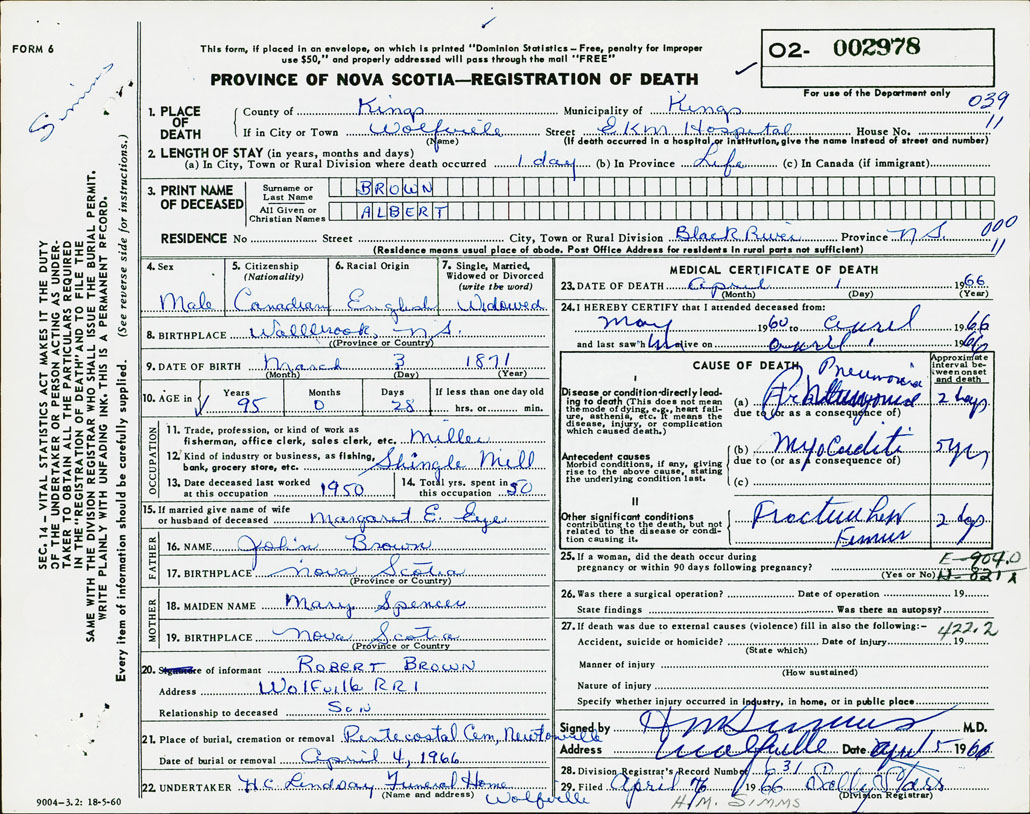 FORM 6
This form, if placed in an envelope, on which is printed "Dominion Statistics – Free, penalty for improper
use $50," and properly addressed will pass through the mail "FREE"
PROVINCE OF NOVA SCOTIA—REGISTRATION OF DEATH
02- 002978
For use of the Department only
Simms
039
11
1. PLACE OF DEATH
County of Kings Municipality of Kings
If in City or Town Wolfville Street E.K.M Hospital House No.
(Name) (If death occurred in a hospital or institution, give the name instead of street and number)
2. LENGTH OF STAY (in years, months and days)
(a) In City, Town or Rural Division where death occurred 1 day (b) In Province Life (c) In Canada (if immigrant)
3. PRINT NAME OF DECEASED
Surname or Last Name BROWN
All Given or Christian Names ALBERT
RESIDENCE No Street City, Town or Rural Division Black River Province N.S.
(Residence means usual place of abode. Post Office Address for residents in rural parts not sufficient)
000
11
4. Sex Male
5. Citizenship (Nationality) Canadian
6. Racial Origin English
7. Single, Married, Widowed or Divorced (write the word) Widowed
8. BIRTHPLACE Wallbrook, N.S.
(Province or Country)
9. DATE OF BIRTH March 3 1871
(Month) (Day) (Year)
10. AGE in Years 95 Months 0 Days 28 If less than one day old hrs. or min.
OCCUPATION
11. Trade, profession, or kind of work as
fisherman, office clerk, sales clerk, etc. Miller
12. Kind of industry or business, as fishing,
bank, grocery store, etc. Shingle Mill
13. Date deceased last worked at this occupation 1950
14. Total yrs. spent in this occupation 50
15. If married give name of wife
or husband of deceased Margaret E. Eye
FATHER
16. NAME John Brown
17. BIRTHPLACE Nova Scotia
(Province or Country)
MOTHER
18. MAIDEN NAME Mary Spencer
19. BIRTHPLACE Nova Scotia
(Province or Country
20. Signature of informant ROBERT BROWN
Address Wolfville RR1
Relationship to deceased Son
21. Place of burial, cremation or removal Pentecostal Cem, Newtonville
Date of burial or removal April 4, 1966
22. UNDERTAKER H.C. Lindsay Funeral Home
(Name and address) Wolfville
MEDICAL CERTIFICATE OF DEATH
23. DATE OF DEATH April 1 1966
(Month) (Day) (Year)
24. I HEREBY CERTIFY that I attended deceased from:
May 1960 to April 1966
and last saw h im alive on April 1 1966
CAUSE OF DEATH
Approximate interval between onset and death
I
Disease or condition directly leading to death (This does not mean the mode of dying, e.g., heart failure, asthenia, etc. It means the disease, injury, or complication which caused death.)
(a) Pneumonia 2 days
due to (or as a consequence of)
Antecedent causes
Morbid conditions, if any, giving rise to the above cause, stating the underlying condition last.
(b) Myocarditis 5 yrs
due to (or as a consequence of)
(c)
II
Other significant conditions
contributing to the death, but not related to the disease or condition causing it.
Fracture Femur 2 days
25. If a woman, did the death occur during
pregnancy or within 90 days following pregnancy?
(Yes or No)
E-904.0
26. Was there a surgical operation? Date of operation 19
State findings Was there an autopsy?
27. If death was due to external causes (violence) fill in also the following:-
422.2
Accident, suicide or homicide? Date of injury 19
(State which)
Manner of injury
(How sustained)
Nature of injury
Specify whether injury occurred in industry, in home, or in public place
Signed by H M Simms M.D.
Address Wolfville Date April 5 1966
28. Division Registrar's Record Number 631
29. Filed April 1966
(Division Registrar)
H.M. SIMMS
SEC. 14 – VITAL STATISTICS ACT MAKES IT THE DUTY
OF THE UNDERTAKER OR PERSON ACTING AS UNDER-
TAKER TO OBTAIN ALL THE PARTICULARS REQUIRED
IN THE "REGISTRATION OF DEATH" AND TO FILE THE
SAME WITH THE DIVISION REGISTRAR WHO SHALL ISSUE THE BURIAL PERMIT.
WRITE PLAINLY WITH UNFADING INK. THIS IS A PERMANENT RECORD.
Every item of information should be carefully supplied. (See reverse side for instructions.)
9004-3.2: 18-5-60